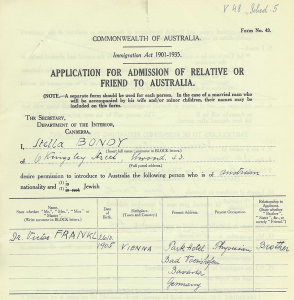 V 48 Sched 5
Form No. 40.
COMMONWEALTH OF AUSTRALIA.
Immigration Act 1901-1935.
APPLICATION FOR ADMISSION OF RELATIVE OR
FRIEND TO AUSTRALIA.
(NOTE.—A separate form should be used for each person. In the case of a married man who
will be accompanied by his wife and/or minor children, their names may be
included on this form.)
THE SECRETARY,
DEPARTMENT OF THE INTERIOR,
CANBERRA.
I, Stella BONDY
(Insert full name—surname in BLOCK letters.)
of 6 Kingsley Street Elwood S3.
desire permission to introduce to Australia the following person who is of Austrian
nationality and (1) is Jewish
(1) is not
Name.
State whether "Mr.", "Mrs.", "Miss" or
"Master"
(Write surname in BLOCK letters).
Birthplace
(Town and Country)
Present Address.
Present Occupation.
Relationship to
Applicant
Dr. Victor FRANKL
1905
VIENNA
Park Hotel
Bad
Bavaria
Germany
Physician
Brother